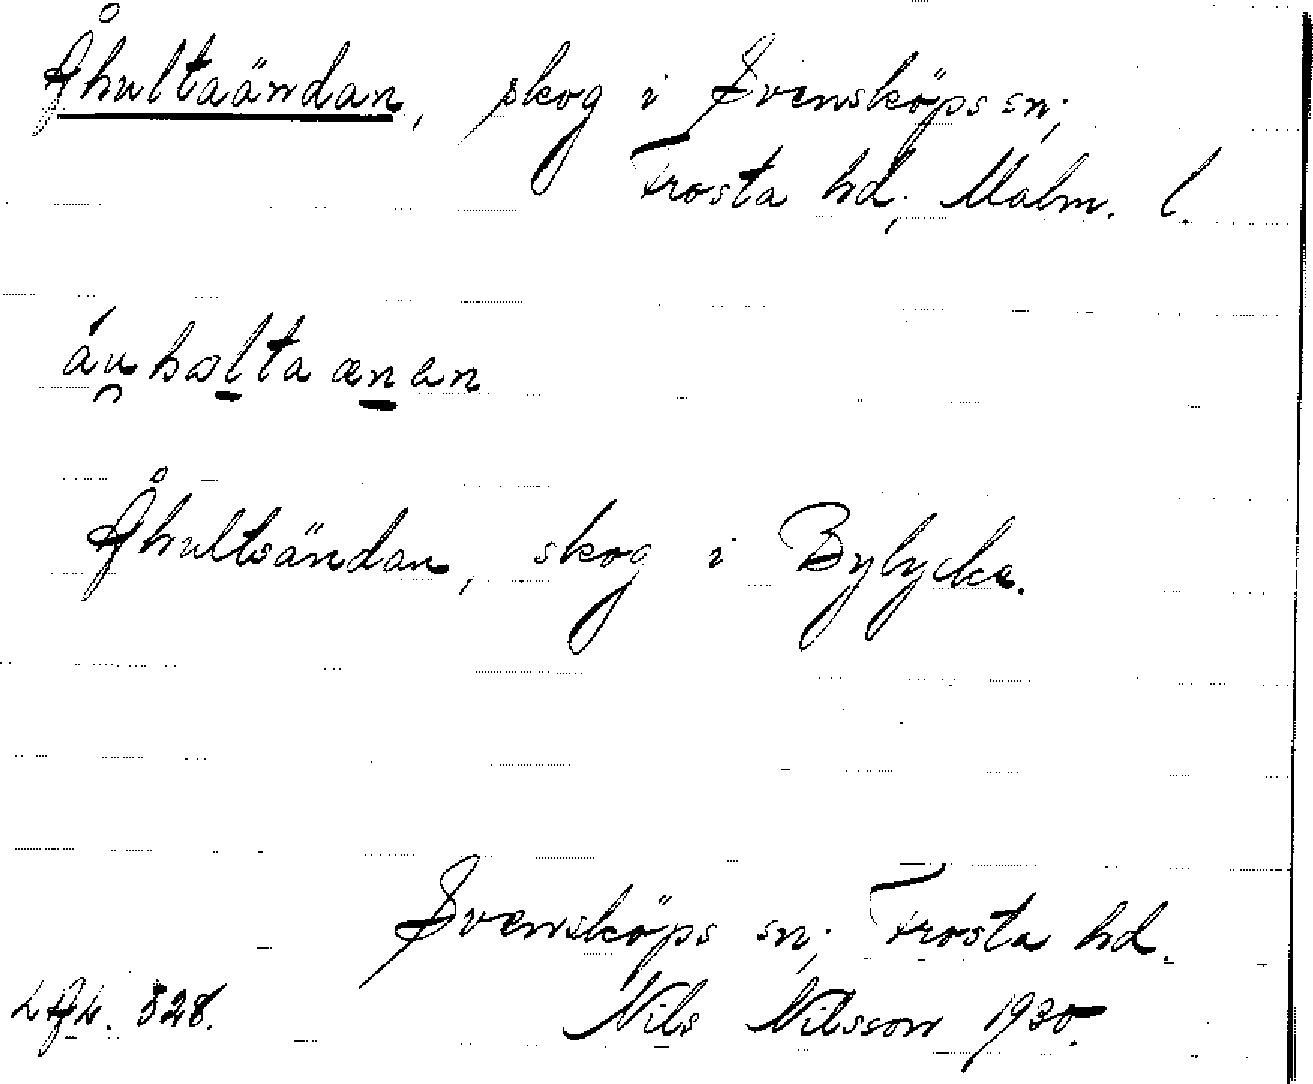 Åhultaändan, skog i Svensköps sn;
Frosta hd; Malm. l.
áu̯hol̠taæn̠an
Åhultsändan, skog i Bylycke.
Svensköps sn; Frosta hd.
Nils Nilsson 1930.